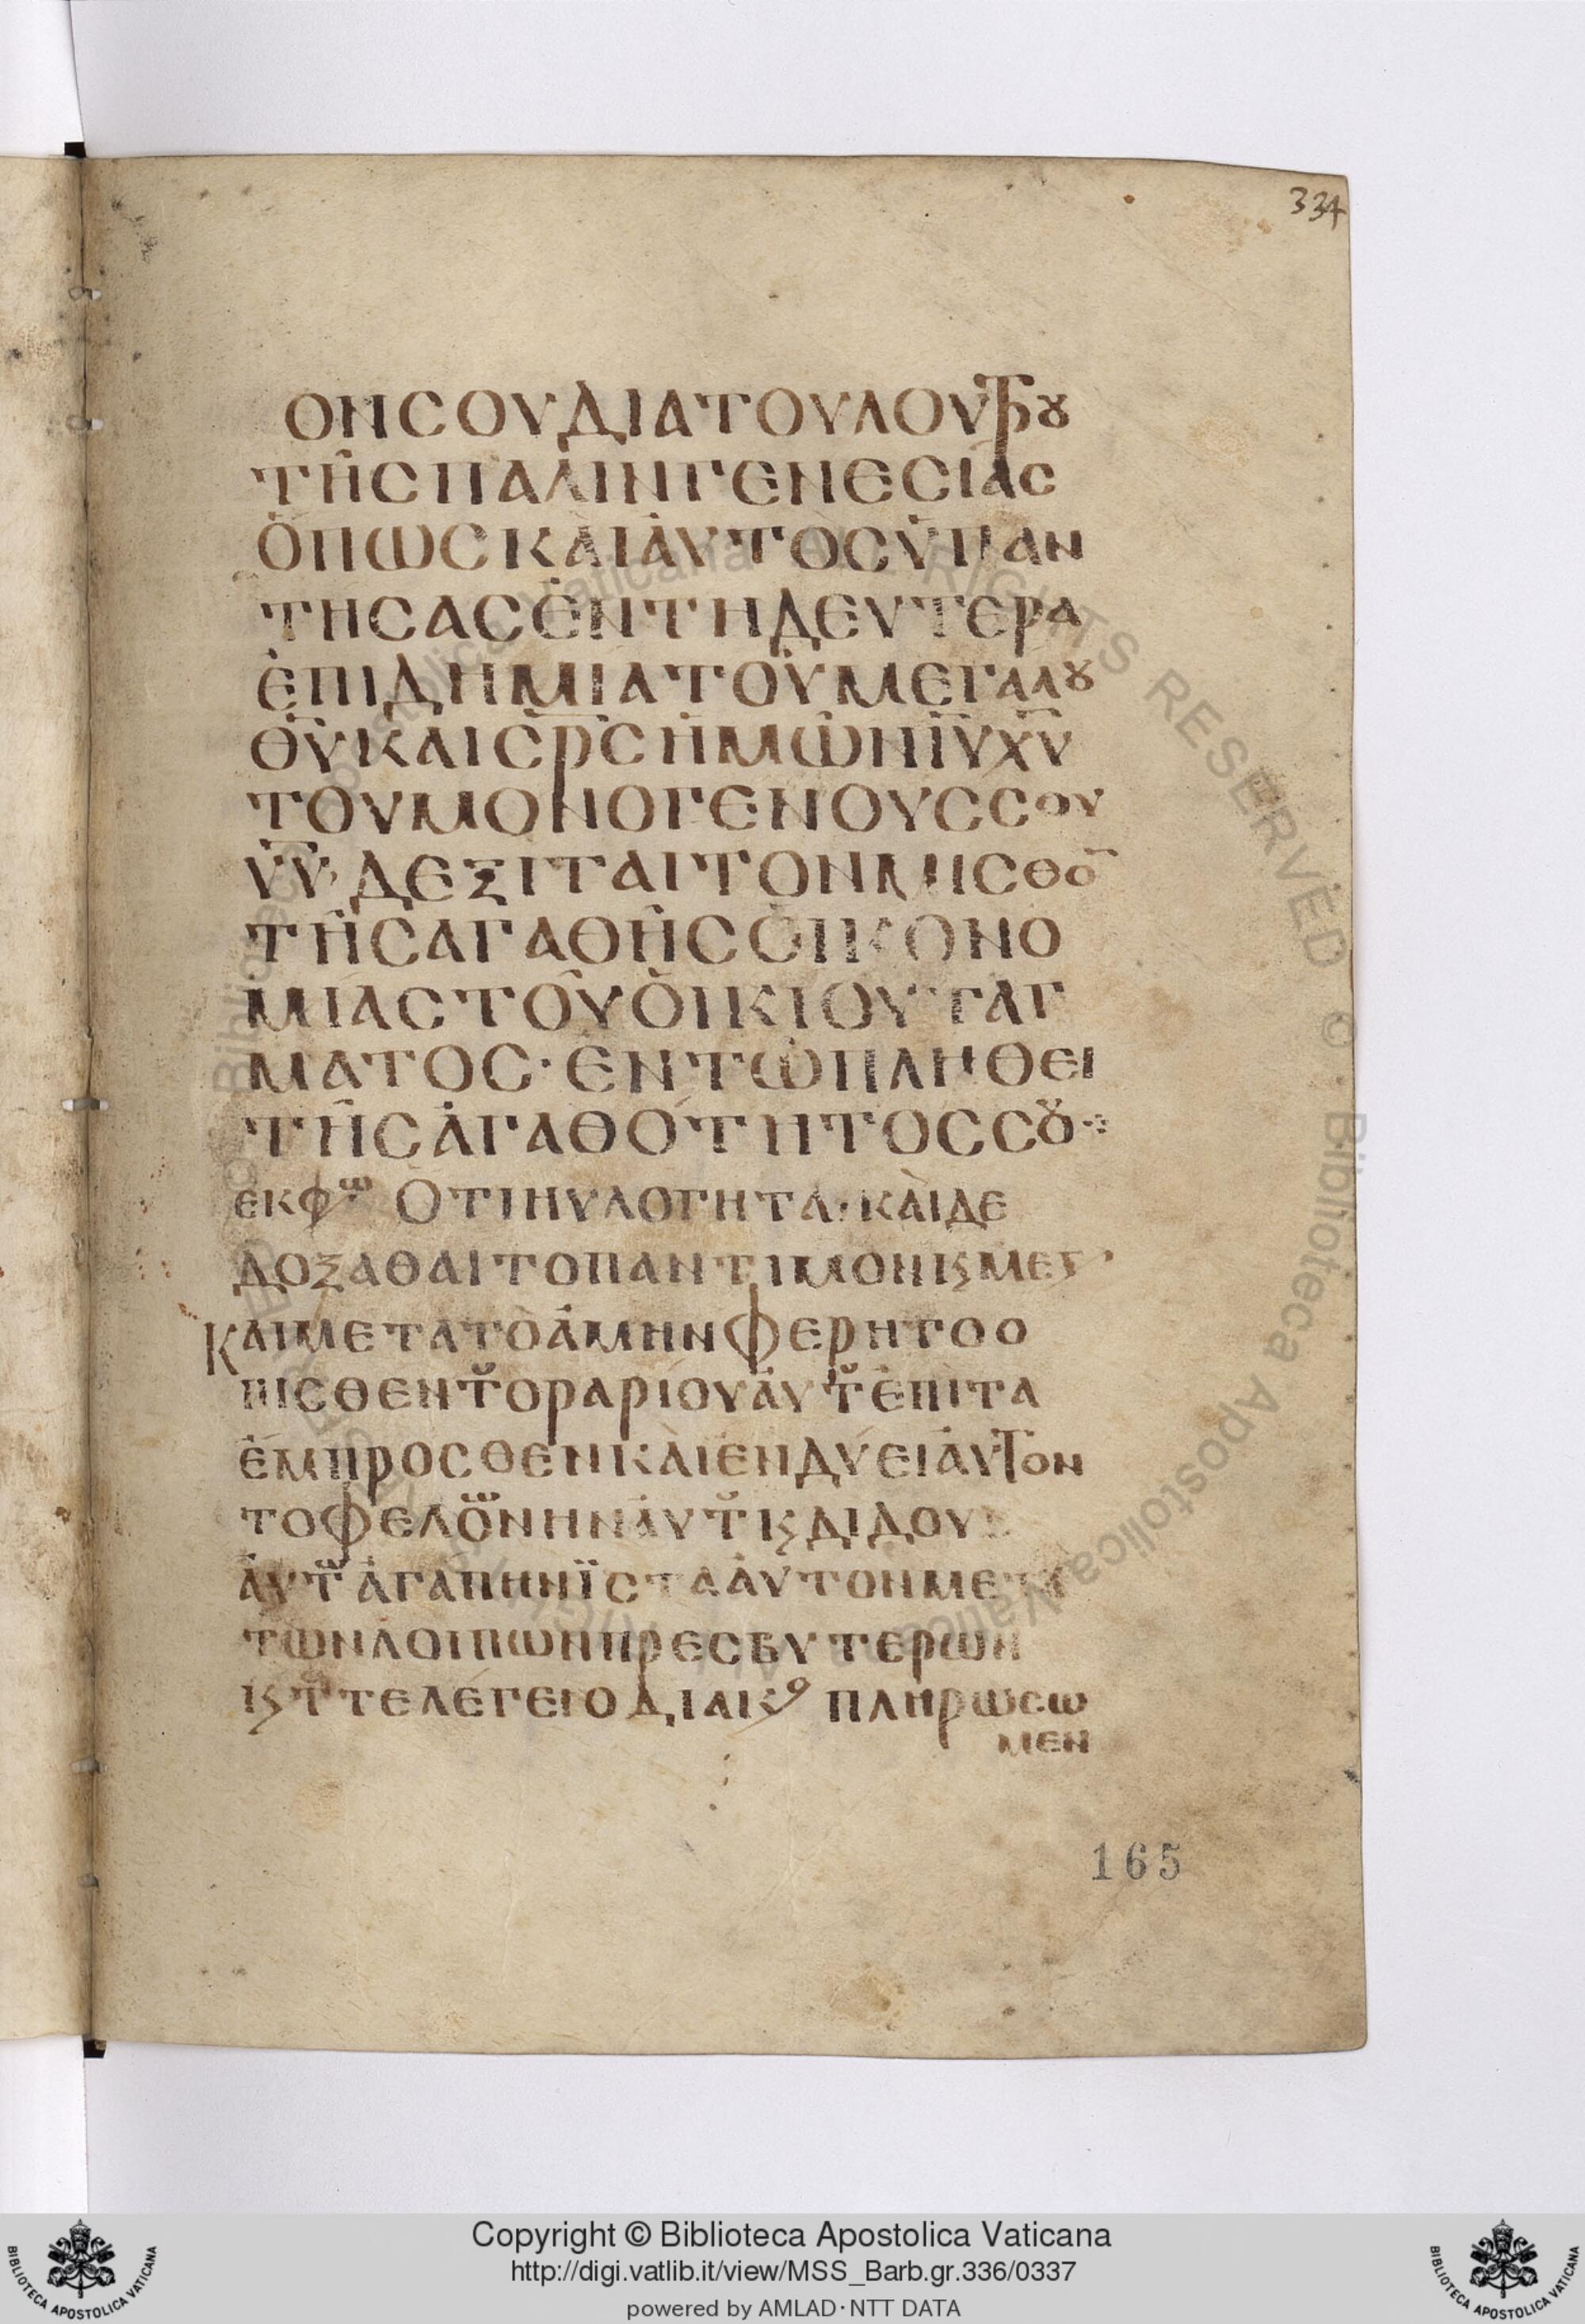 334
ΟΝϹΟΥΔΙΑΤΟΥΛΟΥΤΡȣ
ΤΗ͂ϹΠΑΛΙΝΓΕΝΕϹΙΑϹ
ὉΠΩϹΚΑῚἈΥΤῸϹὙΠΑΝ
ΤΗϹΑϹἘΝΤΗΔΕΥΤΕΡΑ
ἘΠΙΔΗΜΙΑΤΟΥ͂ΜΕΓΑΛȣ
Θ̅Υ̅ΚΑΙϹ̅Ρ̅Ϲ̅ἩΜΩ͂ΝΙ̅Υ̅Χ̅Υ̅
ΤΟΥΜΟΝΟΓΕΝΟΥϹϹΟΥ
Υ̅Υ̅·ΔΕΞΙΤΑΙΤΟΝΜΙϹΘΟ̅
ΤΗ͂ϹΑΓΑΘΗ͂ϹὈΙΚΟΝΟ
ΜΙΑϹΤΟΥ͂ὈΙΚΙΟΥΤΑΓ
ΜΑΤΟϹ·ἘΝΤΩ͂ΠΛΗΘΕΙ
ΤΗ͂ϹἈΓΑΘΌΤΗΤΟϹϹȣ͂·:
ΕΚΦω ὉΤΙΗΥΛΟΓΗΤΑΙΚΑῚΔΕ
ΔΟΞΑϹΘΑΙΤΟΠΑΝΤΙΜΟΝΙϚΜΕΓ
ΚΑΙΜΕΤΑΤῸἈΜΗΝΦΕΡΗΤΟΟ
ΠΙϹΘΕΝΤȣΟΡΑΡΙΟΥἈΥΤȣἘΠΙΤΑ
ἘΜΠΡΟϹΘΕΝΚΑῚΕΝΔΥΕΙἈΥΤΟΝ
ΤΟΦΕΛΟΝΗΝἈΥΤȣΚϚΔΙΔΟΥϹ
ἈΥΤȣἈΓΑΠΗΝΪϹΤΑἈΥΤΟΝΜΕΤΑ
ΤΩΝΛΟΙΠΩΝΠΡΕϹΒΥΤΕΡΩΝ
ΚϚΤȣΤΕΛΕΓΕΙΟΔΙΑΚο ΠΛΗΡΩϹΩ
ΜΕΝ
165
Copyright © Biblioteca Apostolica Vaticana
http://digi.vatlib.it/view/MSS_Barb.gr.336/0337
powered by AMLAD·NTT DATA